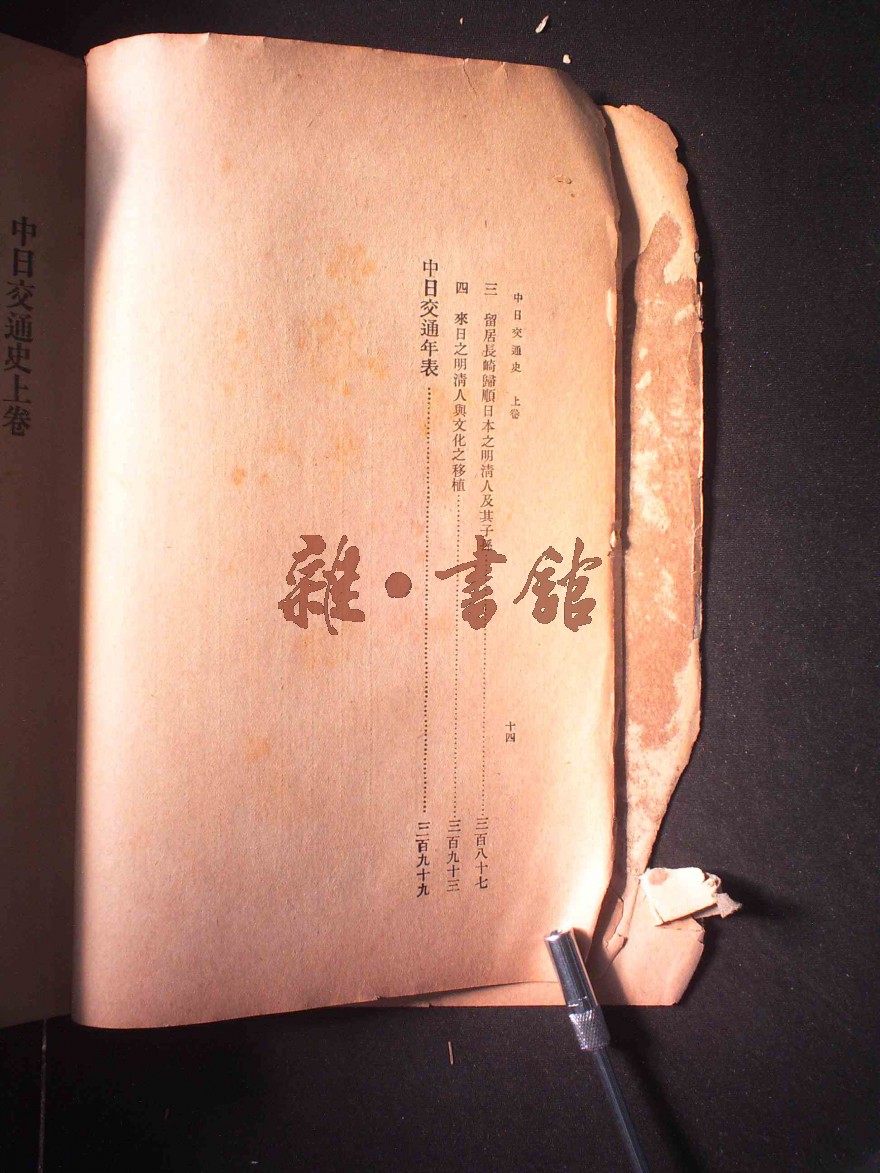 中日交通史 上卷
十四
三 留居長崎歸順日本之明清人及其子…………三百八十七
四 來日之明清人與文化之移植…………三百九十三
中日交通年表…………三百九十九
中日交通史上卷
雜·書館